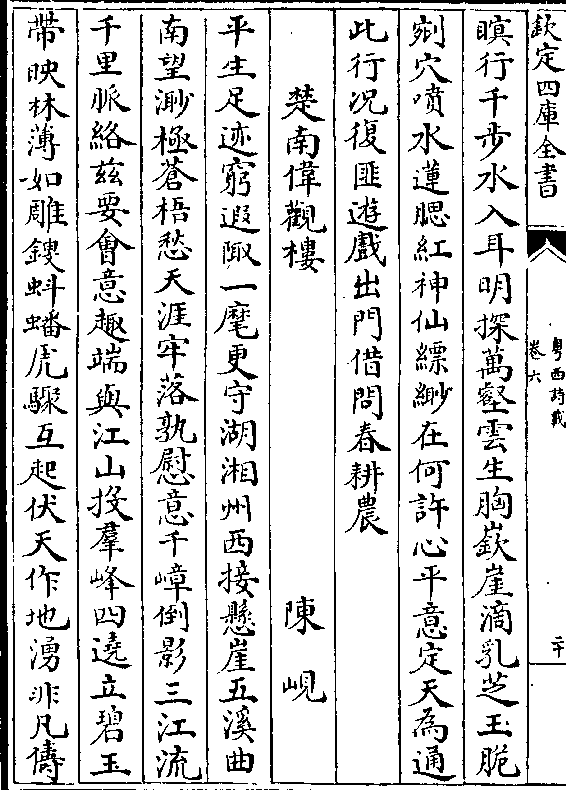 欽定四庫全書
粵西詩載
卷六
二十
瞑行千步水入耳明探萬壑雲生胸嶔崖滴乳芝玉脆
剜穴噴水蓮腮紅神仙縹緲在何許心平意定天為通
此行況復匪遊戲出門借問春耕農
楚南偉觀樓 陳峴
平生足迹窮遐陬一麾更守湖湘州西接懸崖五溪曲
南望渺極蒼梧愁天涯牢落孰慰意千嶂倒影三江流
千里脈絡茲要會意趣端與江山投羣峰四遶立碧玉
帶映林薄如雕鎪蚪蟠虎驟互起伏天作地湧非凡儔